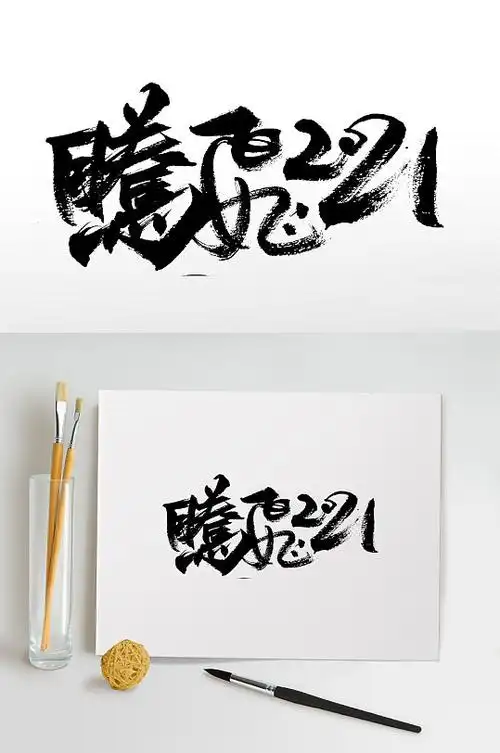 騰飛2021
騰飛2021